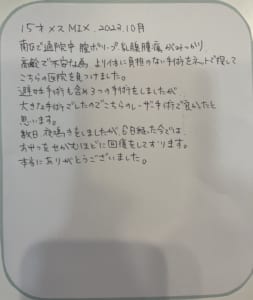 15才メスMIX. 2023.10月
前日で通院中 膣ポリープ、乳腺腫瘍がみつかり
高齢で不安な為 より体に負担のない手術をネットで探して
こちらの医院を見つけました。
避妊手術も含め3つの手術をしましたが
大きな手術でしたのでこちらのレーザー手術で良かったと
思います。
数日、夜鳴きをしましたが、6日経った今では
おやつをせがむほどに回復をしております。
本当にありがとうございました。